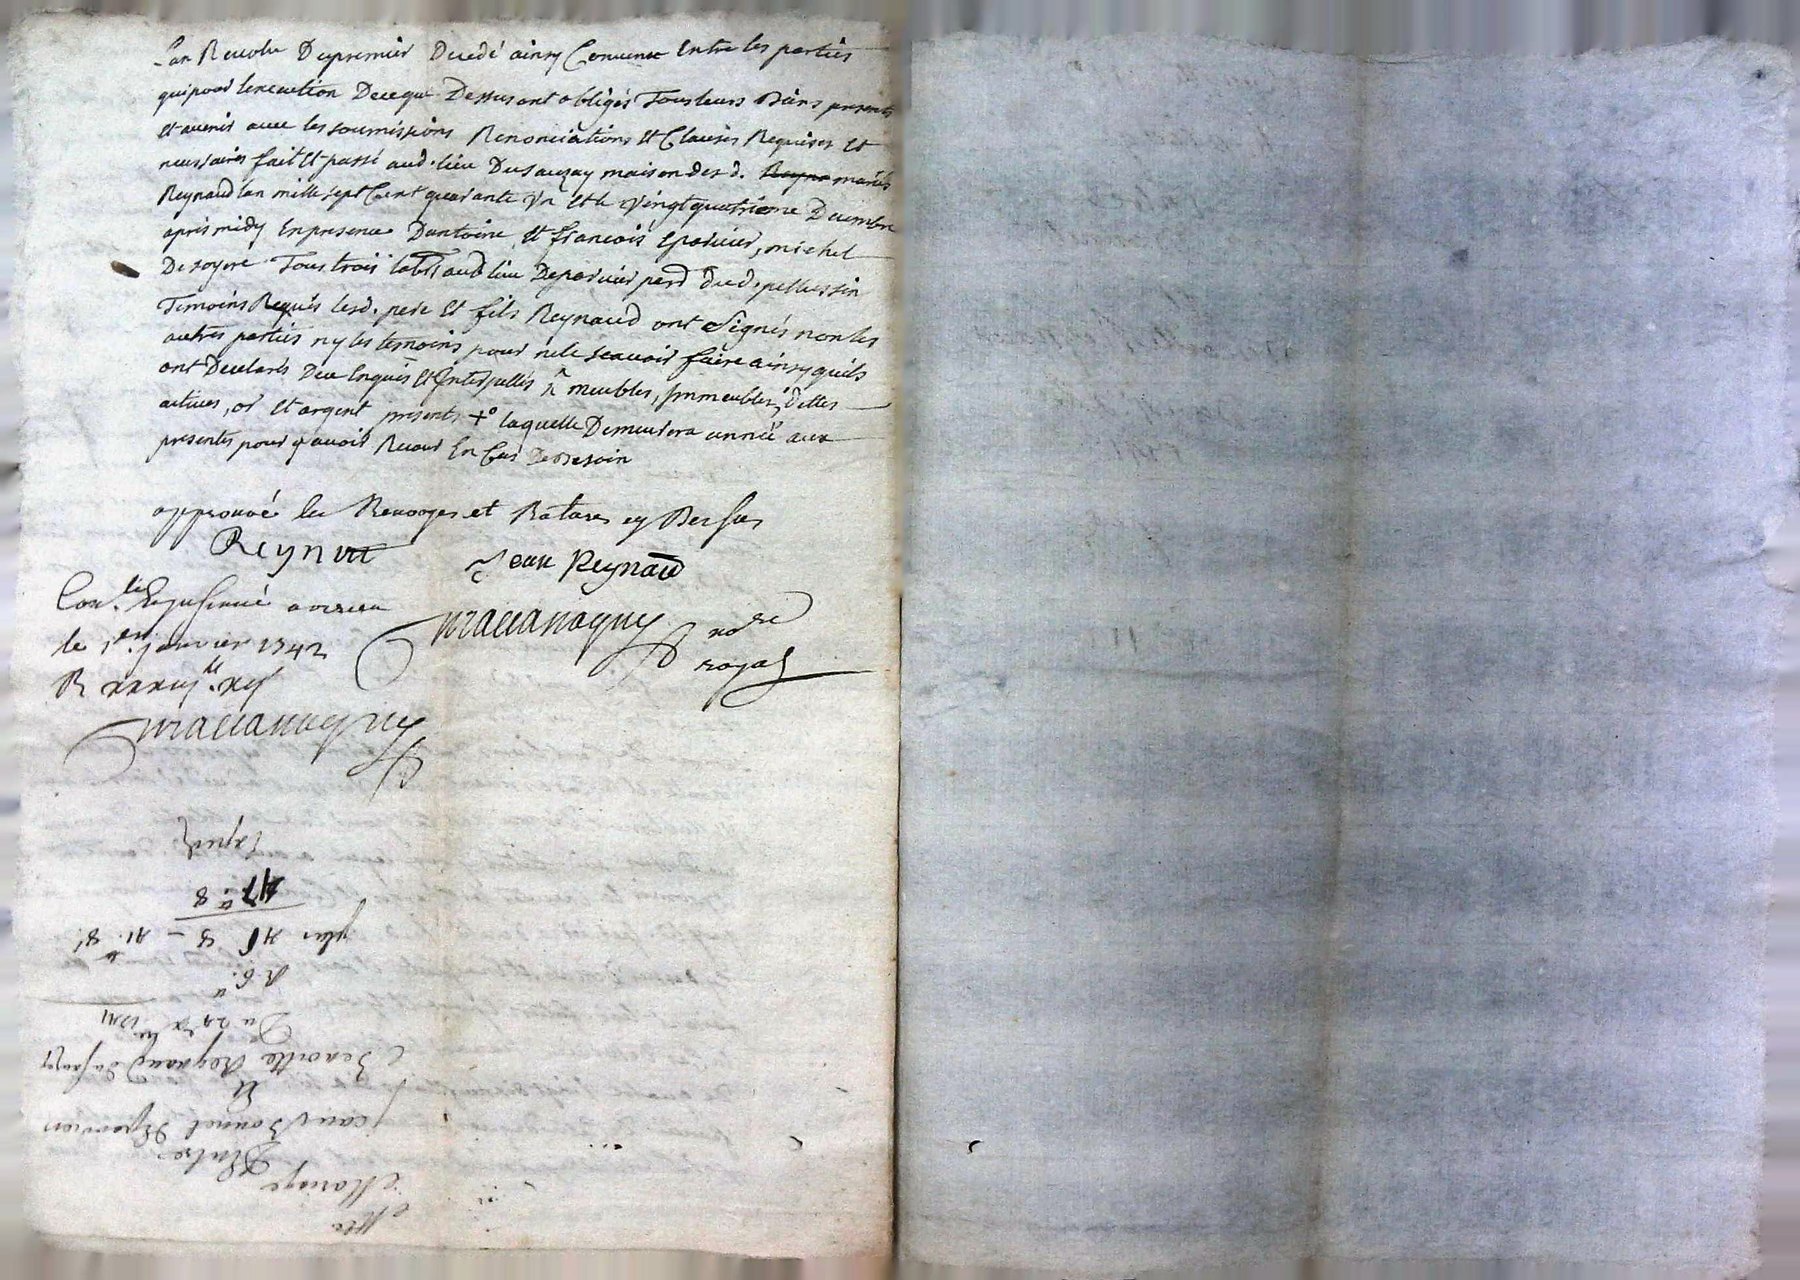 l'an Revolu Du premier Decedé ainsy Convenu Entre les parties
qui pour l'execution De ce que Dessus ont obligés Tous leurs Biens presents
et avenir avec les soumissions Renonciations Et Clauses Requises Et
necessaires fait Et passé aud. lieu Du sauzay maison des d. Reyna mariés
Reynaud l'an mille sept Cent quarante Un Et le vingt quatrieme Decembre
apris midy En presence D'antoine Et françois Eparvier, michel
De soyere Tous trois lab.rs aud. lieu Deparvier pard Dud. pellussin
Temoins Requis lesd. pere Et fils Reynaud ont Signés non les
autres parties ny les temoins pour ne le scavoir faire ainsy quils
ont Declarés De ce Enquis Et Interpellés meubles, Immeubles, dettes
actives, or Et argent presents, +° laquelle Demeurera annéé aux
presentes pour y avoir Recour En Cas De Besoin
approuvé les Renvoyes et Ratures cy Dessus
Reynaud
Jean Reynaud
Con.lé Et insinué a virieu
le 1er. janvier 1742
R xxxiij.lt xijs
maccanoguy
no.re
royal
maccanoguy
Mre
Mariage
D'Entre
Jean Bonnet Deparvier
Et
Benoitte Reynaud Du sauzay
Du 24 xbre 1741
R 6.lt
plus 41 8 – 41.lt 8s
47lt 8
Expedié